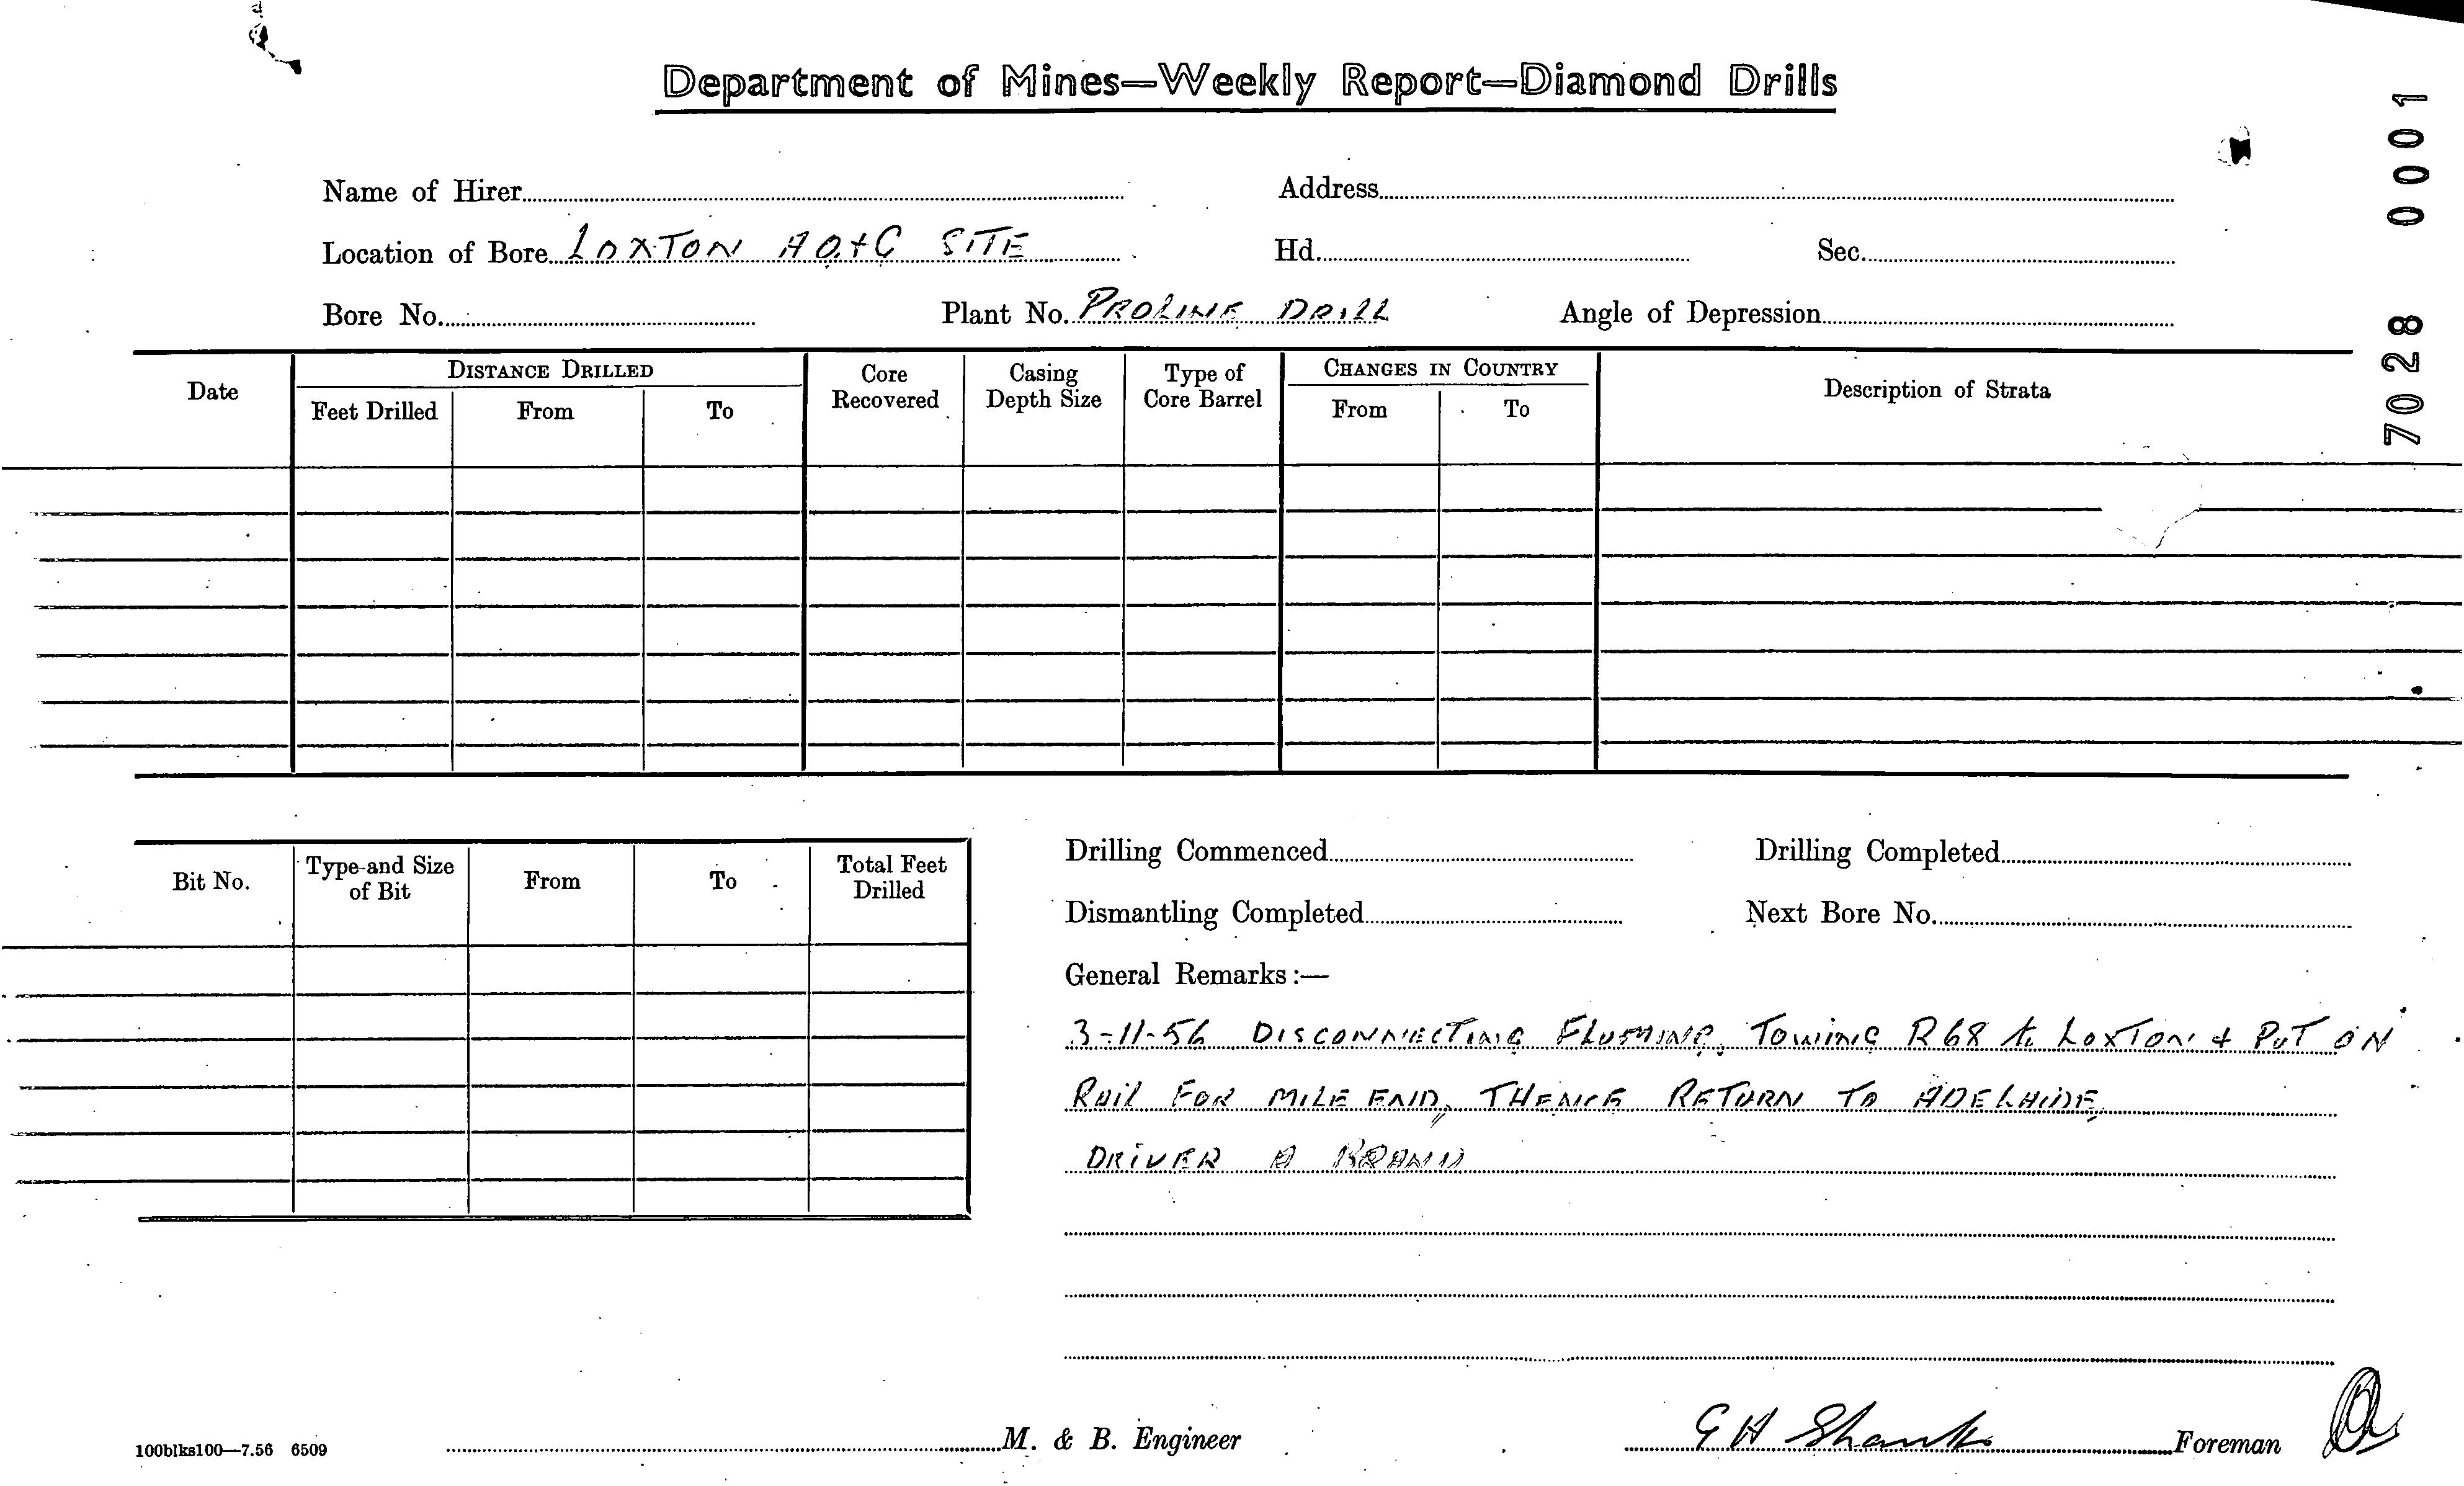 Department of Mines—Weekly Report—Diamond Drills
Name of Hirer
Address
Location of Bore LOXTON A O.+G SITE
Hd.
Sec.
Bore No.
Plant No. PROLINE DRILL
Angle of Depression
Date
DISTANCE DRILLED
Feet Drilled
From
To
Core Recovered
Casing Depth Size
Type of Core Barrel
CHANGES IN COUNTRY
From
To
Description of Strata
7028 0001
Bit No.
Type and Size of Bit
From
To
Total Feet Drilled
Drilling Commenced
Drilling Completed
Dismantling Completed
Next Bore No.
General Remarks:—
3-11-56 DISCONNECTING FLUSHING, TOWING R68 to LOXTON + PUT ON
RAIL FOR MILE END, THENCE RETURN TO ADELAIDE.
DRIVER A BRAND
100blks100—7.56 6509
M. & B. Engineer
G H Shank Foreman